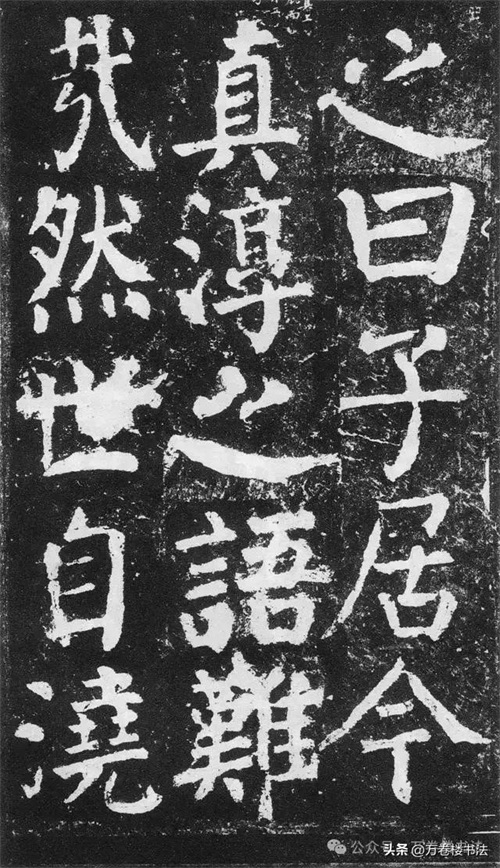 之曰子居今
真淳之語難
哉然世自澆
公众号
头条 @万卷楼书法